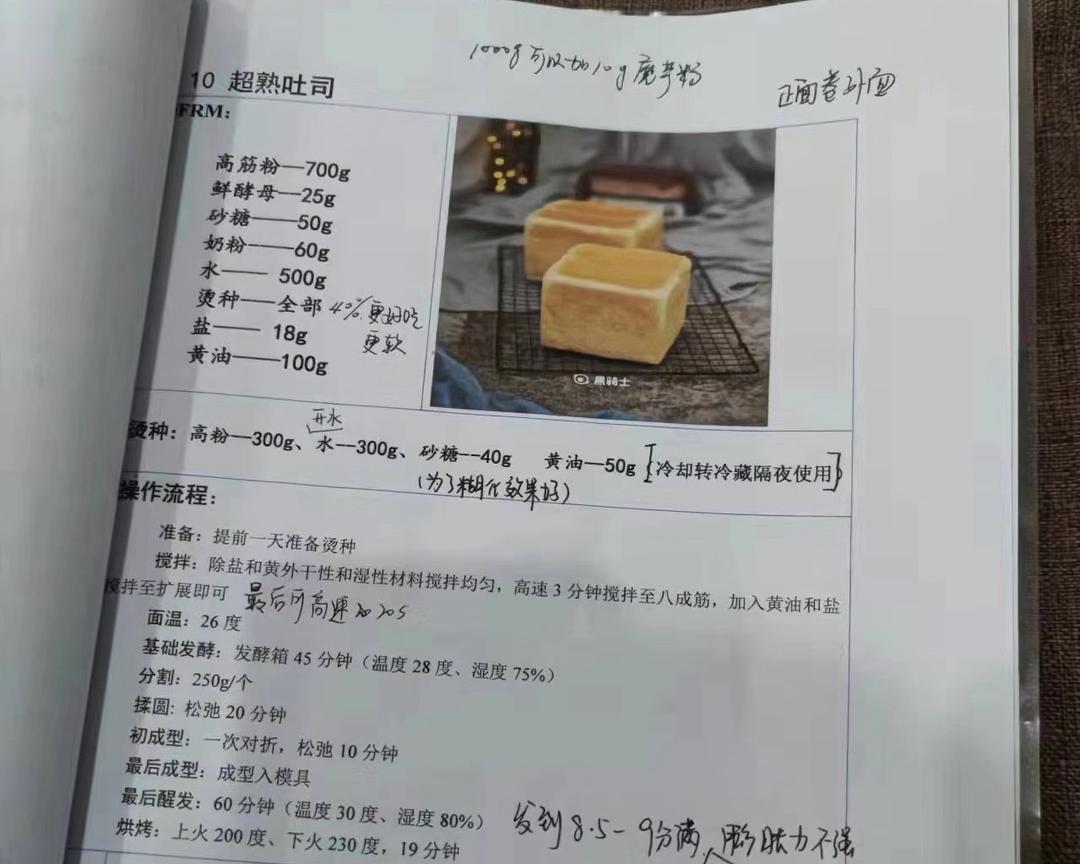 1000g可以加10g魔芋粉
正面卷外面
10 超熟吐司
FRM：
高筋粉—700g
鲜酵母—25g
砂糖——50g
奶粉——60g
水—— 500g
烫种——全部 4%更好吃
更软
盐—— 18g
黄油——100g
黑骑士
开水
烫种：高粉—300g、水—300g、砂糖--40g 黄油—50g [冷却转冷藏隔夜使用]
(为了糊化效果好)
操作流程：
准备：提前一天准备烫种
搅拌：除盐和黄外干性和湿性材料搅拌均匀，高速 3 分钟搅拌至八成筋，加入黄油和盐
搅拌至扩展即可 最后可高速加20s
面温：26 度
基础发酵：发酵箱 45 分钟（温度 28 度、湿度 75%）
分割：250g/个
揉圆: 松弛 20 分钟
初成型：一次对折，松弛 10 分钟
最后成型：成型入模具
最后醒发：60 分钟（温度 30 度、湿度 80%） 发到8.5-9分满，膨胀力不强
烘烤：上火 200 度、下火 230 度，19 分钟